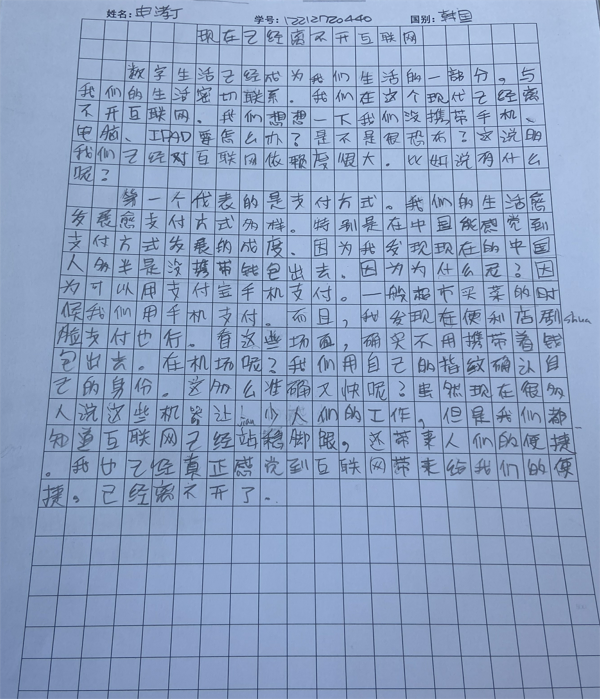 姓名：申 学号：12212720440 国别：韩国
现在已经离不开互联网
数字生活已经成为我们生活的一部分，与
我们的生活密切联系。我们在这个现代已经离
不开互联网。我们想想一下我们没携带手机、
电脑、IPAD要怎么办？是不是很恐怖？这说明
我们已经对互联网依赖度很大。比如说有什么
呢？
第一个代表的是支付方式。我们的生活愈
发展愈支付方式多样。特别是在中国能感觉到
支付方式发展的成度、因为我发现现在的中国
人多半是没携带钱包出去、因为为什么呢？因
为可以用支付宝手机支付。一般超市买菜的时
候我们用手机支付。而且，我发现在便利店刷shua
脸支付也行。看这些场面，确实不用携带着钱
包出去。在机场呢？我们用自己的指纹确认自
己的身份。这多么准确又快呢？虽然现在很多
人说这些机器让jian少人们的工作，但是我们都
知道互联网已经站稳脚跟，还带来人们的便捷
。我也已经真正感觉到互联网带来给我们的便
捷，已经离不开了。